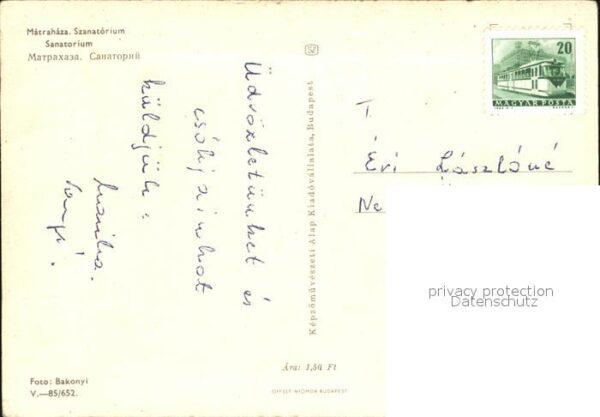 Mátraháza. Szanatórium
Sanatorium
Матрахаза. Санаторий
Üdvözletünket és
csókjainkat
küldjük:
Képzőművészeti Alap Kiadóvállalata, Budapest
20
MAGYAR POSTA
T.
Évi Lászlóné
Na
privacy protection
Datenschutz
Foto: Bakonyi
V.—85/652.
Ára: 1,50 Ft
OFFSET NYOMDA BUDAPEST